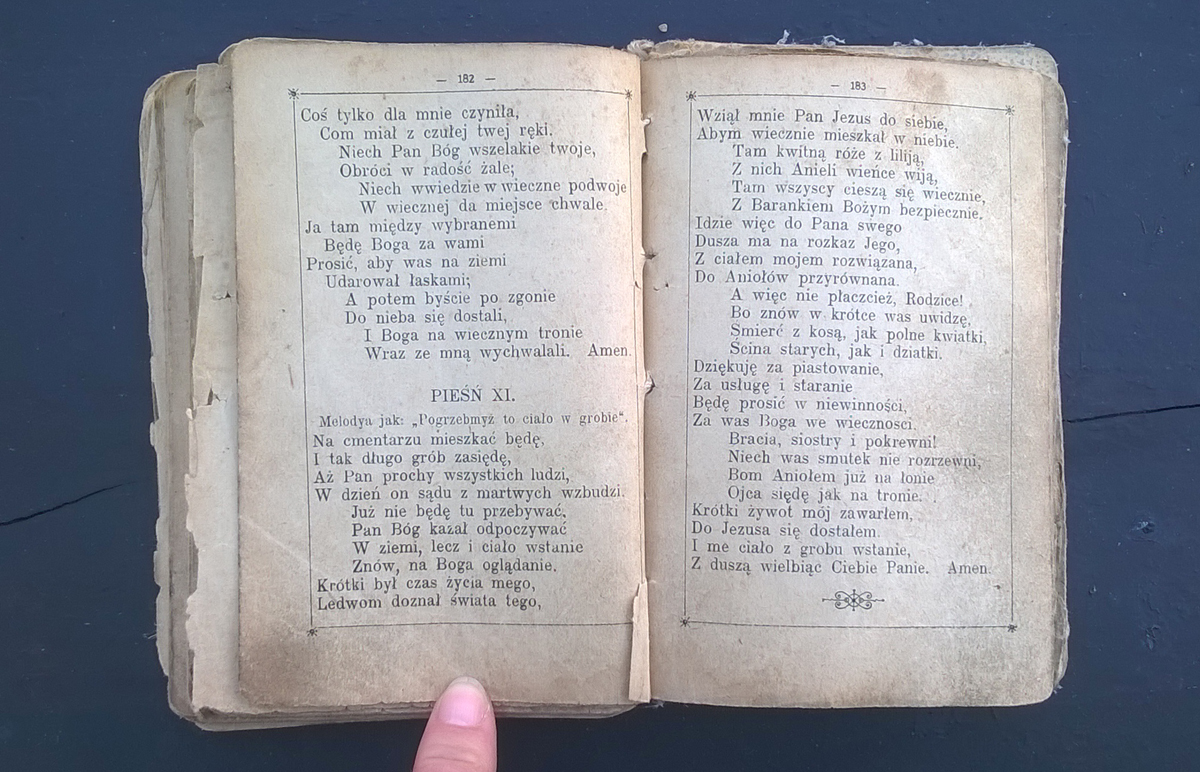 — 182 —
Coś tylko dla mnie czyniła,
Com miał z czułej twej ręki.
Niech Pan Bóg wszelakie twoje,
Obróci w radość żale;
Niech wwiedzie w wieczne podwoje
W wiecznej da miejsce chwale.
Ja tam między wybranemi
Będę Boga za wami
Prosić, aby was na ziemi
Udarował łaskami;
A potem byście po zgonie
Do nieba się dostali,
I Boga na wiecznym tronie
Wraz ze mną wychwalali. Amen.
PIEŚŃ XI.
Melodya jak: „Pogrzebmyż to ciało w grobie“.
Na cmentarzu mieszkać będę,
I tak długo grób zasiędę,
Aż Pan prochy wszystkich ludzi,
W dzień on sądu z martwych wzbudzi.
Już nie będę tu przebywać,
Pan Bóg kazał odpoczywać
W ziemi, lecz i ciało wstanie
Znów, na Boga oglądanie.
Krótki był czas życia mego,
Ledwom doznał świata tego,
— 183 —
Wziął mnie Pan Jezus do siebie,
Abym wiecznie mieszkał w niebie.
Tam kwitną róże z liliją,
Z nich Anieli wieńce wiją,
Tam wszyscy cieszą się wiecznie,
Z Barankiem Bożym bezpiecznie.
Idzie więc do Pana swego
Dusza ma na rozkaz Jego,
Z ciałem mojem rozwiązana,
Do Aniołów przyrównana.
A więc nie płaczcież, Rodzice!
Bo znów w krótce was uwidzę,
Śmierć z kosą, jak polne kwiatki,
Ścina starych, jak i dziatki.
Dziękuję za piastowanie,
Za usługę i staranie
Będę prosić w niewinności,
Za was Boga we wieczności.
Bracia, siostry i pokrewni!
Niech was smutek nie rozrzewni,
Bom Aniołem już na łonie
Ojca siędę jak na tronie.
Krótki żywot mój zawarłem,
Do Jezusa się dostałem.
I me ciało z grobu wstanie,
Z duszą wielbiąc Ciebie Panie. Amen.